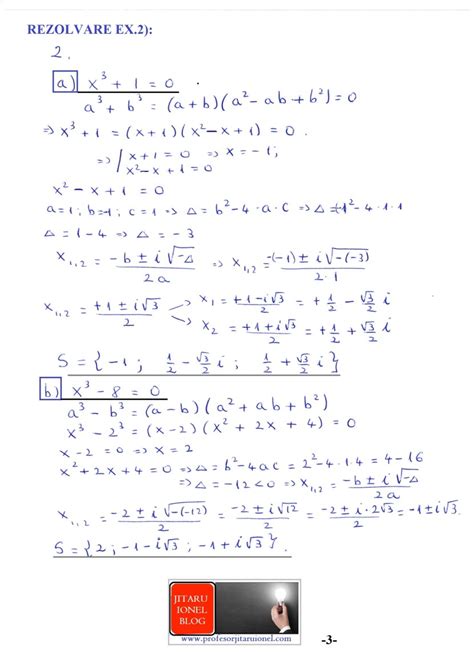 REZOLVARE EX.2):
2.
a) x³ + 1 = 0
a³ + b³ = (a+b)(a² - ab + b²) = 0
=> x³ + 1 = (x+1)(x² - x + 1) = 0
=> x + 1 = 0 => x = -1;
x² - x + 1 = 0
x² - x + 1 = 0
a=1; b=-1; c=1 => Δ = b² - 4·a·c => Δ = 1² - 4·1·1
Δ = 1 - 4 => Δ = -3
x₁,₂ = (-b ± i√-Δ)/2a => x₁,₂ = (-(-1) ± i√-(-3))/2·1
x₁,₂ = (+1 ± i√3)/2 x₁ = (+1 - i√3)/2 = +1/2 - √3/2 i
x₂ = (+1 + i√3)/2 = +1/2 + √3/2 i
S = {-1; 1/2 - √3/2 i; 1/2 + √3/2 i}
b) x³ - 8 = 0
a³ - b³ = (a-b)(a² + ab + b²)
x³ - 2³ = (x-2)(x² + 2x + 4) = 0
x - 2 = 0 => x = 2
x² + 2x + 4 = 0 => Δ = b² - 4ac = 2² - 4·1·4 = 4 - 16
=> Δ = -12 < 0 => x₁,₂ = (-b ± i√-Δ)/2a
x₁,₂ = (-2 ± i√-(-12))/2 = (-2 ± i√12)/2 = (-2 ± i·2√3)/2 = -1 ± i√3
S = {2; -1 - i√3; -1 + i√3}.
JITARU
IONEL
BLOG
www.profesorjitaruionel.com
-3-